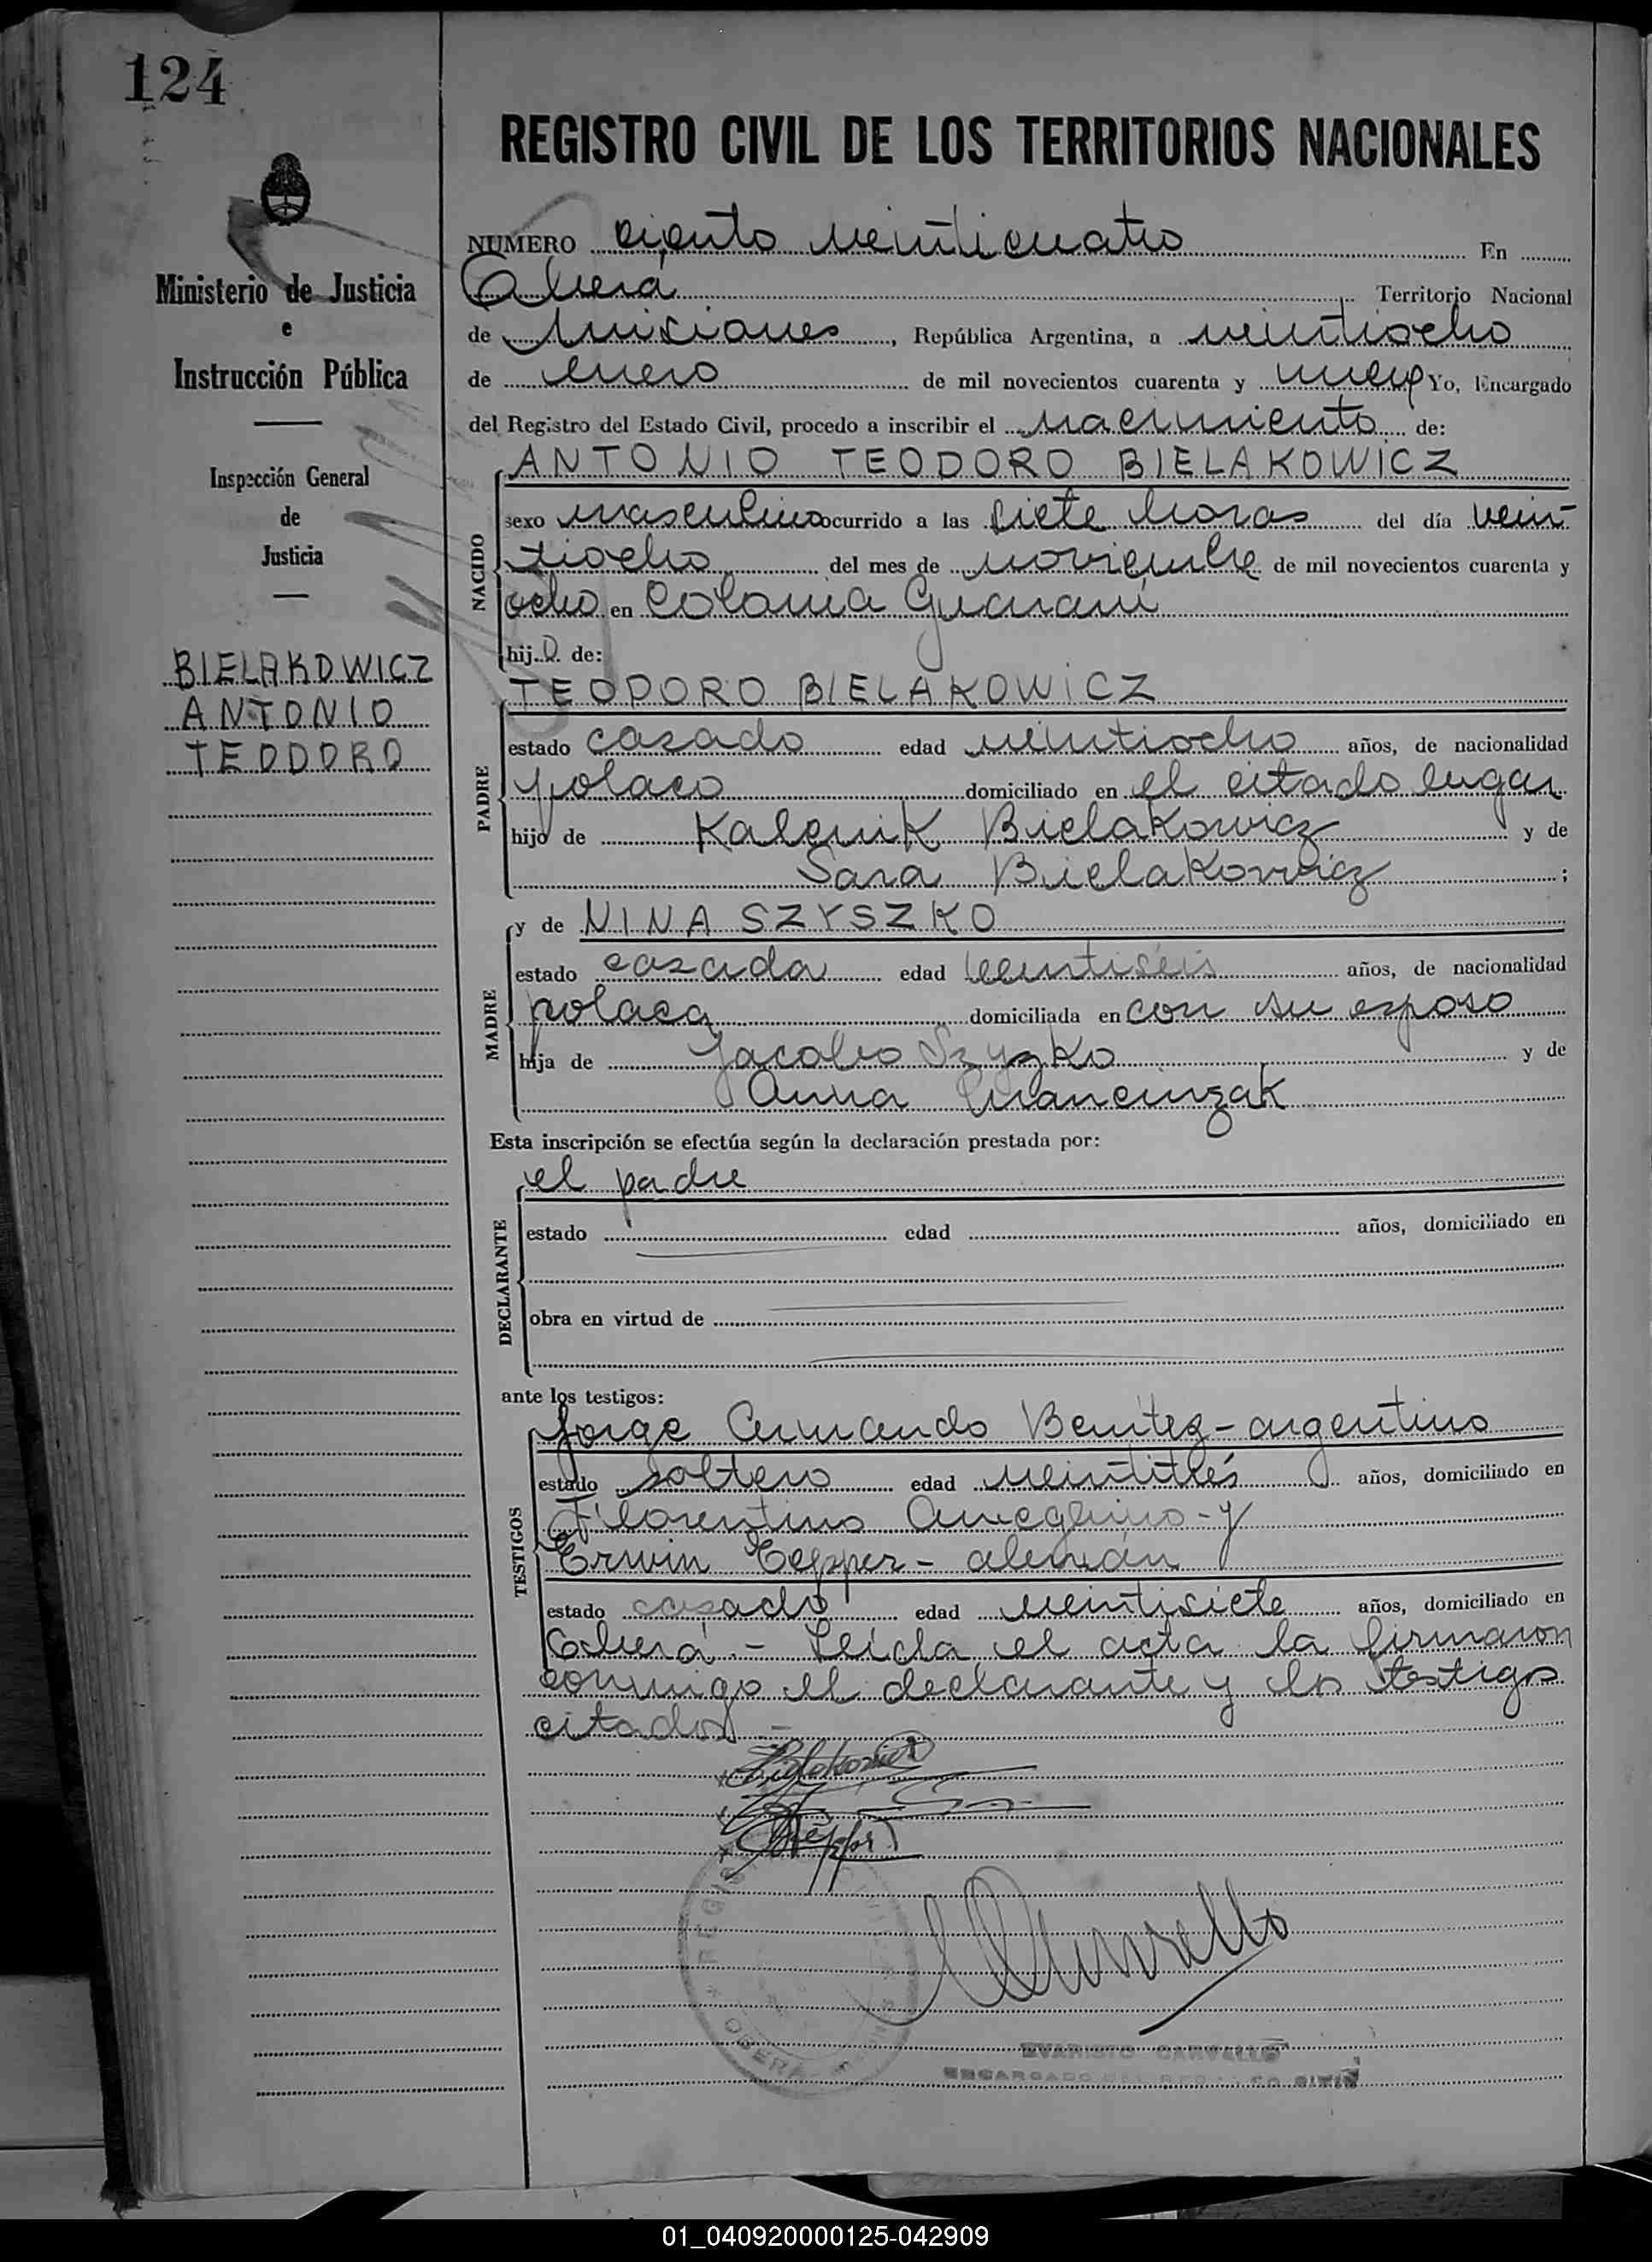 124
REGISTRO CIVIL DE LOS TERRITORIOS NACIONALES
Ministerio de Justicia
e
Instrucción Pública
Inspección General
de
Justicia
BIELAKOWICZ
ANTONIO
TEODORO
NUMERO ciento veinticuatro En
Oberá Territorio Nacional
de Misiones, República Argentina, a veintiocho
de enero de mil novecientos cuarenta y nueve Yo, Encargado
del Registro del Estado Civil, procedo a inscribir el nacimiento de:
NACIDO
ANTONIO TEODORO BIELAKOWICZ
sexo masculino ocurrido a las siete horas del día vein-
tiocho del mes de noviembre de mil novecientos cuarenta y
ocho en Colonia Guaraní
hijo de:
PADRE
TEODORO BIELAKOWICZ
estado casado edad veintiocho años, de nacionalidad
polaco domiciliado en el citado lugar
hijo de Kalenik Bielakowicz y de
Sara Bielakowicz ;
MADRE
y de NINA SZYSZKO
estado casada edad veintiséis años, de nacionalidad
polaca domiciliada en con su esposo
hija de Jacobo Szyzko y de
Anna
Esta inscripción se efectúa según la declaración prestada por:
DECLARANTE
el padre
estado edad años, domiciliado en
obra en virtud de
ante los testigos:
TESTIGOS
Jorge Armando Benitez - argentino
estado soltero edad veintitrés años, domiciliado en
Florentino Ameghino - y
Erwin Tepper - alemán
estado casado edad veintisiete años, domiciliado en
Oberá. - Leída el acta la firmaron
conmigo el declarante y los testigos
citados -
OBERA
EVARISTO CARVALLO
ENCARGADO DEL REGISTRO CIVIL
01_040920000125-042909